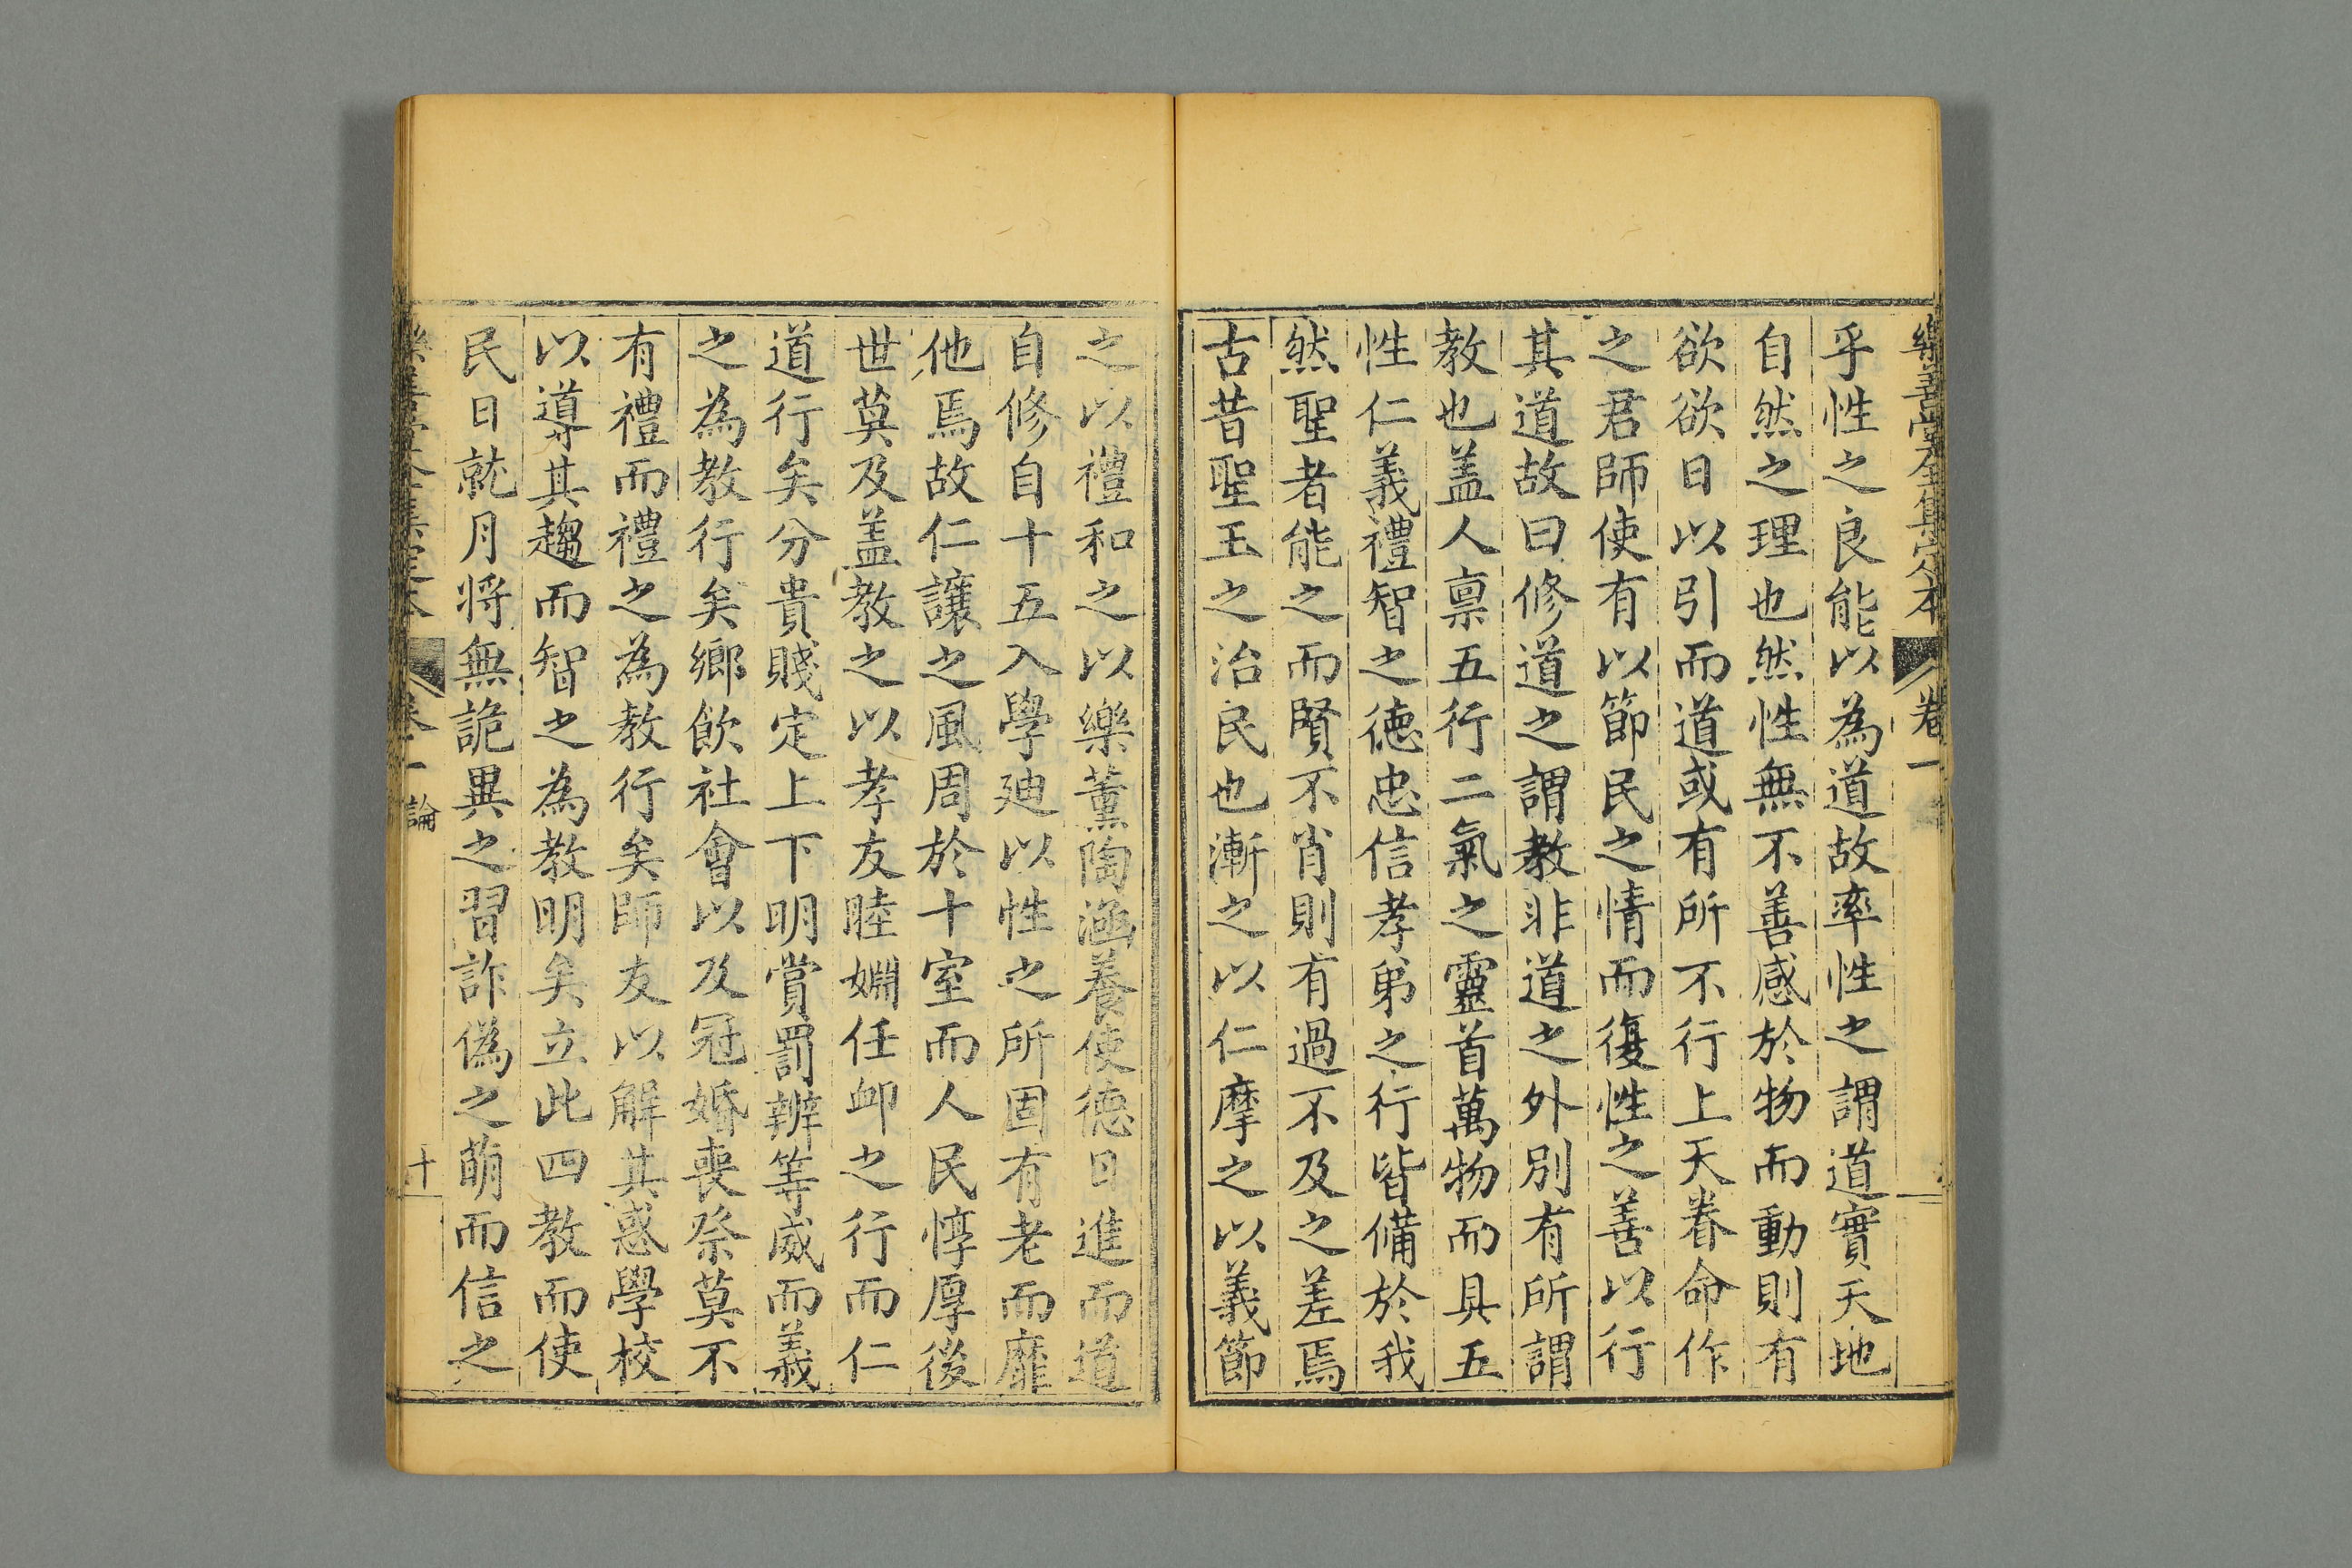 樂善堂全集定本 卷一
乎性之良能以為道故率性之謂道實天地
自然之理也然性無不善感於物而動則有
欲欲日以引而道或有所不行上天眷命作
之君師使有以節民之情而復性之善以行
其道故曰修道之謂教非道之外別有所謂
教也盖人禀五行二氣之靈首萬物而具五
性仁義禮智之德忠信孝弟之行皆備於我
然聖者能之而賢不肖則有過不及之差焉
古昔聖王之治民也漸之以仁摩之以義節
之以禮和之以樂薰陶涵養使德日進而道
自修自十五入學迪以性之所固有老而靡
他焉故仁讓之風周於十室而人民惇厚後
世莫及盖教之以孝友睦婣任卹之行而仁
道行矣分貴賤定上下明賞罰辨等威而義
之為教行矣鄉飲社會以及冠婚喪祭莫不
有禮而禮之為教行矣師友以解其惑學校
以導其趨而智之為教明矣立此四教而使
民日就月將無詭異之習詐偽之萌而信之
樂善堂全集定本 卷一 論 十